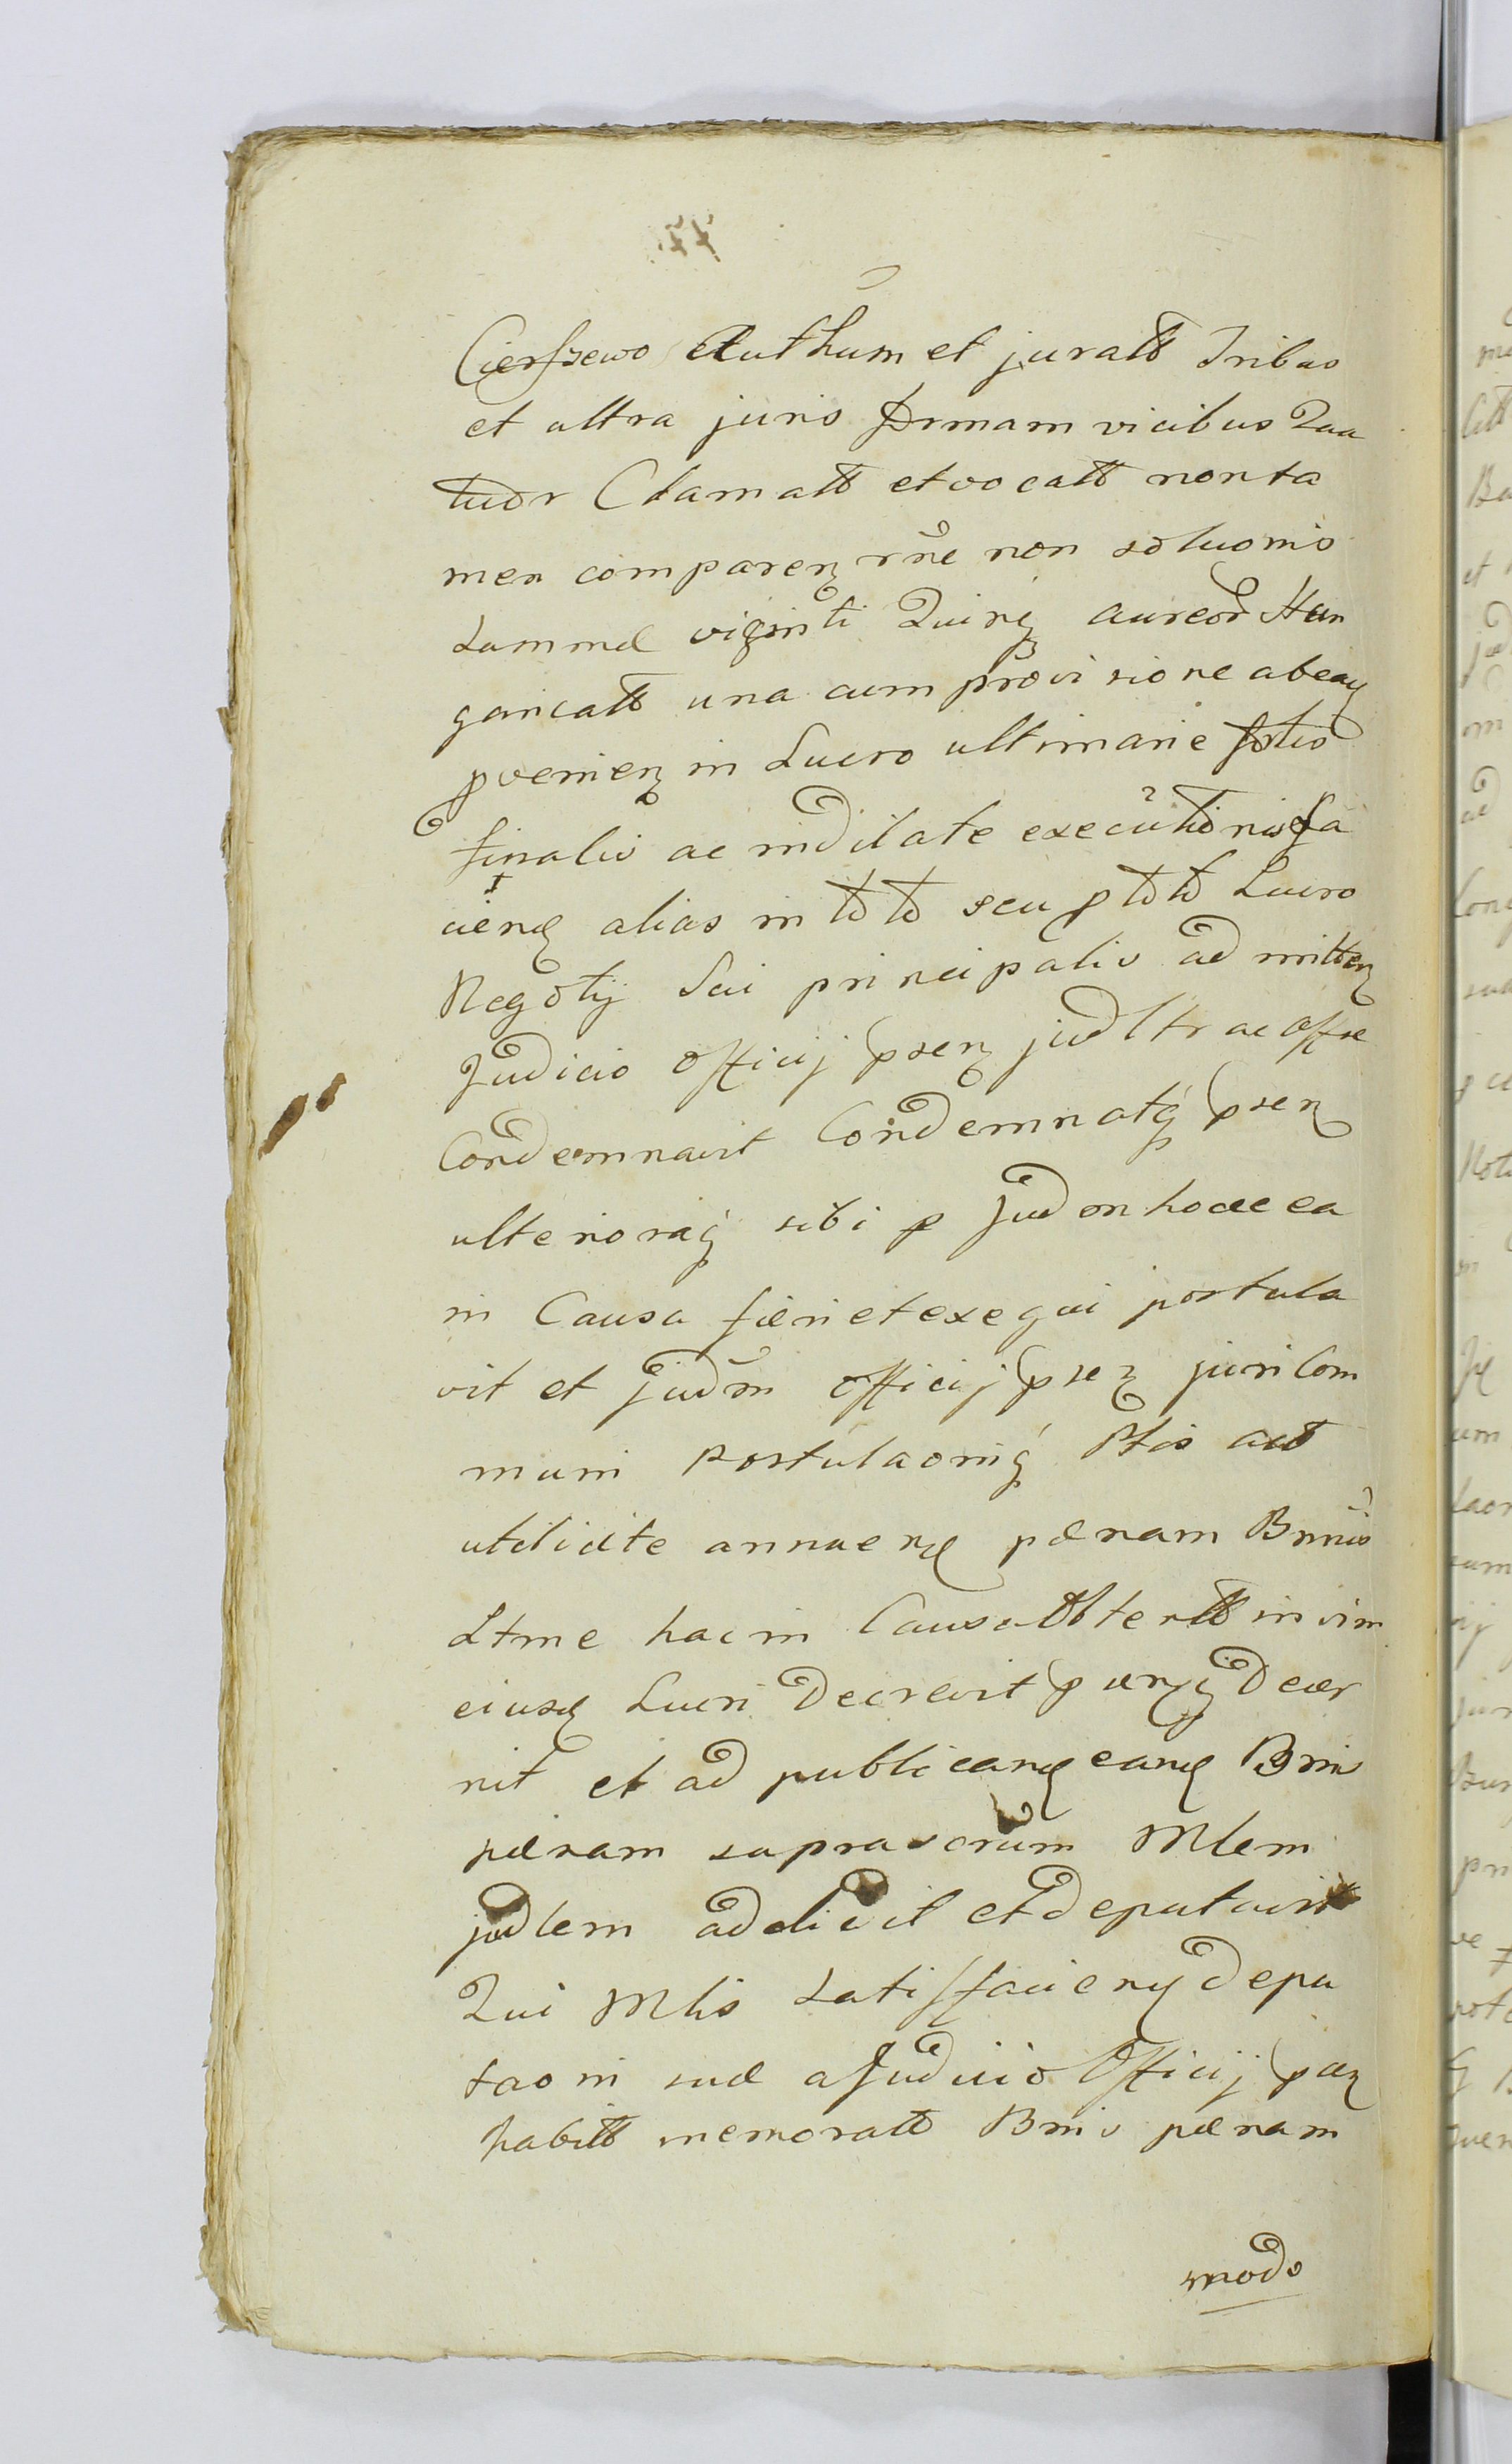 Cierszewo Authum et juratt Tribus
et ultra juris formam vicibus Qua
tuor Clamatt et vocatt non ta
men comparenz rne non soluonis
Summæ viginti Quinq aureor Hun
garicatt una cum provisione ab eaq
pvenienz in Lucro ultimarie
finalis ac indilate executionis fa
ciend alias in toto seu p toto Lucro
Negotij Sui principalis admitten
Judicio officij psenz judltr ac offse
Condemnavit Condemnatq psenz
ulterioraq sibi p Judm hocce ea
in Causa fieri et exequi postula
vit et judm officij psenz juri Com
muni postulaonigz Ptis act
utilicite annuend pænam Bnnis
Ltme hac in Causa obtentt in vim
eiusd Lucri Decrevit psenzq Decer
nit et ad publicand eand Bnis
pænam suprascrum Mlem
judlem addicit et deputavit
Qui Mlis Satisfaciend depu
taoni suæ a Judicio Officij psenz
habitt memoratt Bnis pænam
modo